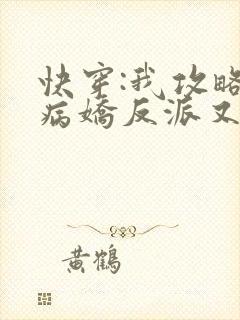 快穿:我攻略
病嬌反派又
黄鶴